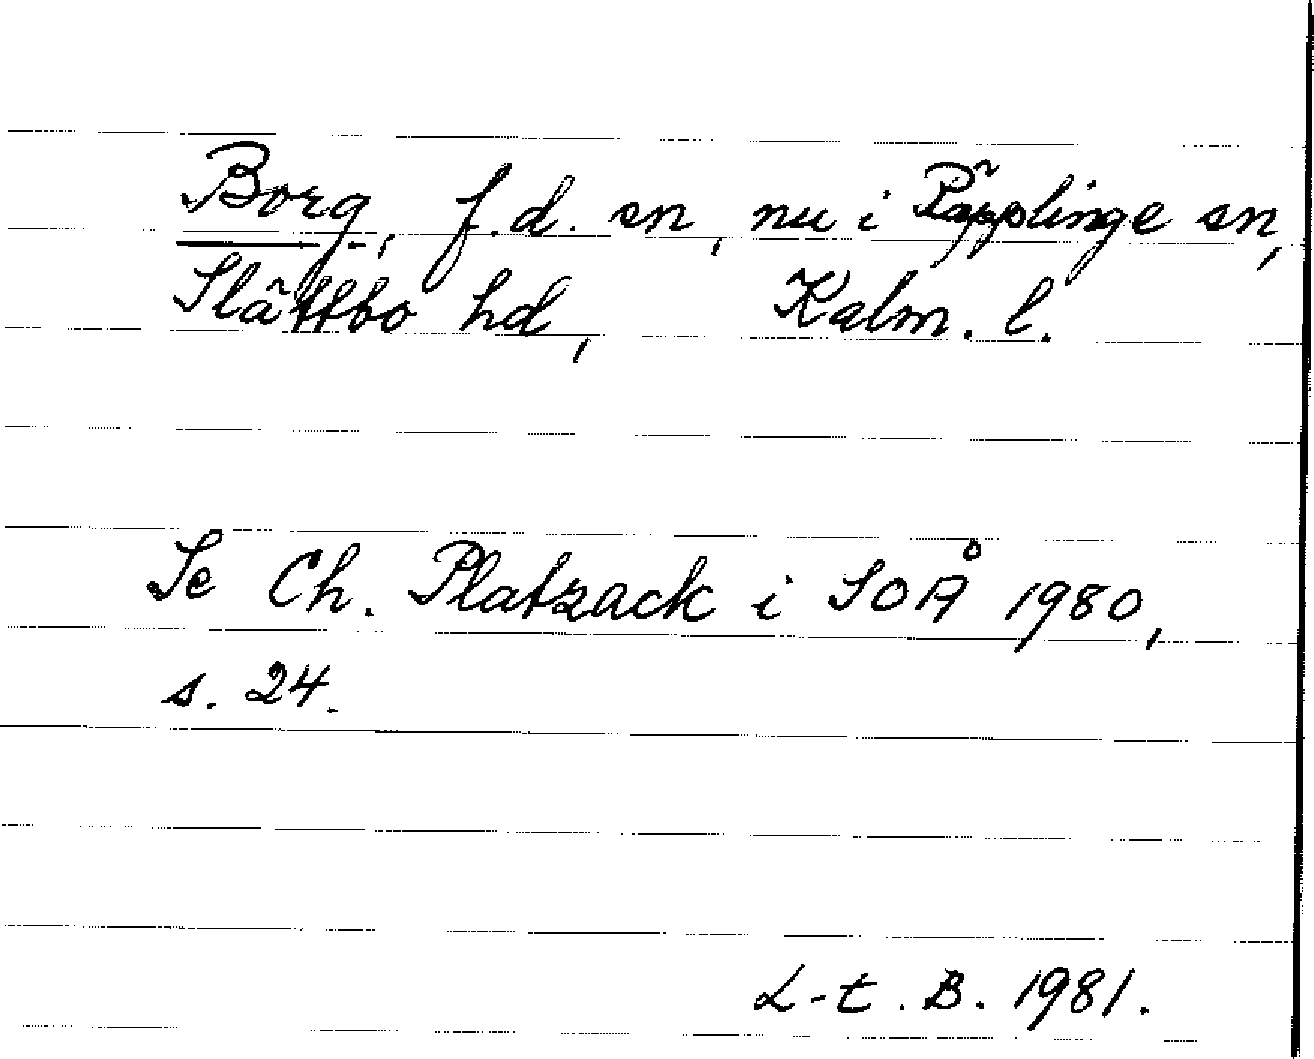 Borg, f.d. sn, nu i Päpplinge sn,
Slättbo hd, Kalm. l.
Se Ch. Platzack i SOÅ 1980,
s. 24.
L-t. B. 1981.